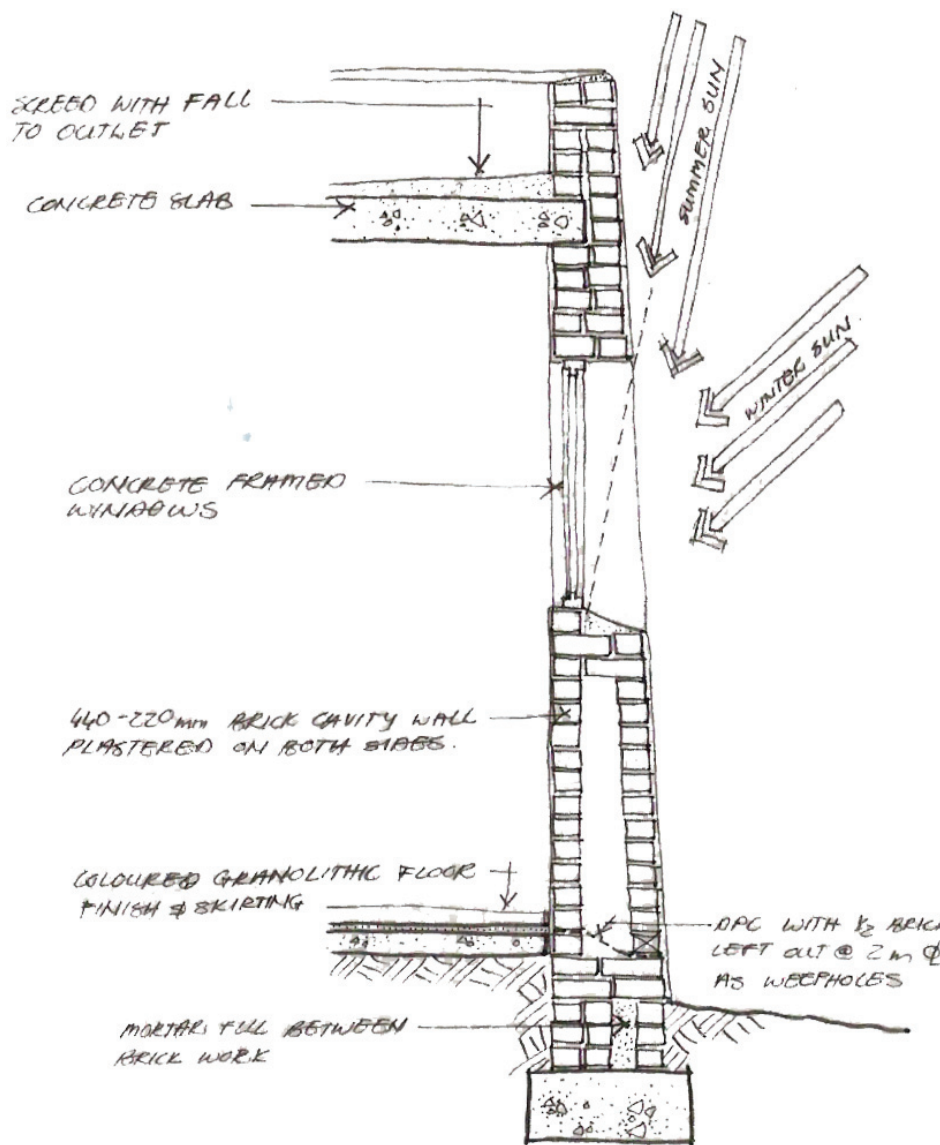 SCREED WITH FALL
TO OUTLET
SUMMER SUN
CONCRETE SLAB
WINTER SUN
CONCRETE FRAMED
WINDOWS
440-220mm BRICK CAVITY WALL
PLASTERED ON BOTH SIDES.
COLOURED GRANOLITHIC FLOOR
FINISH & SKIRTING
DPC WITH ½ BRICK
LEFT OUT @ 2m
AS WEEPHOLES
MORTAR FILL BETWEEN
BRICK WORK